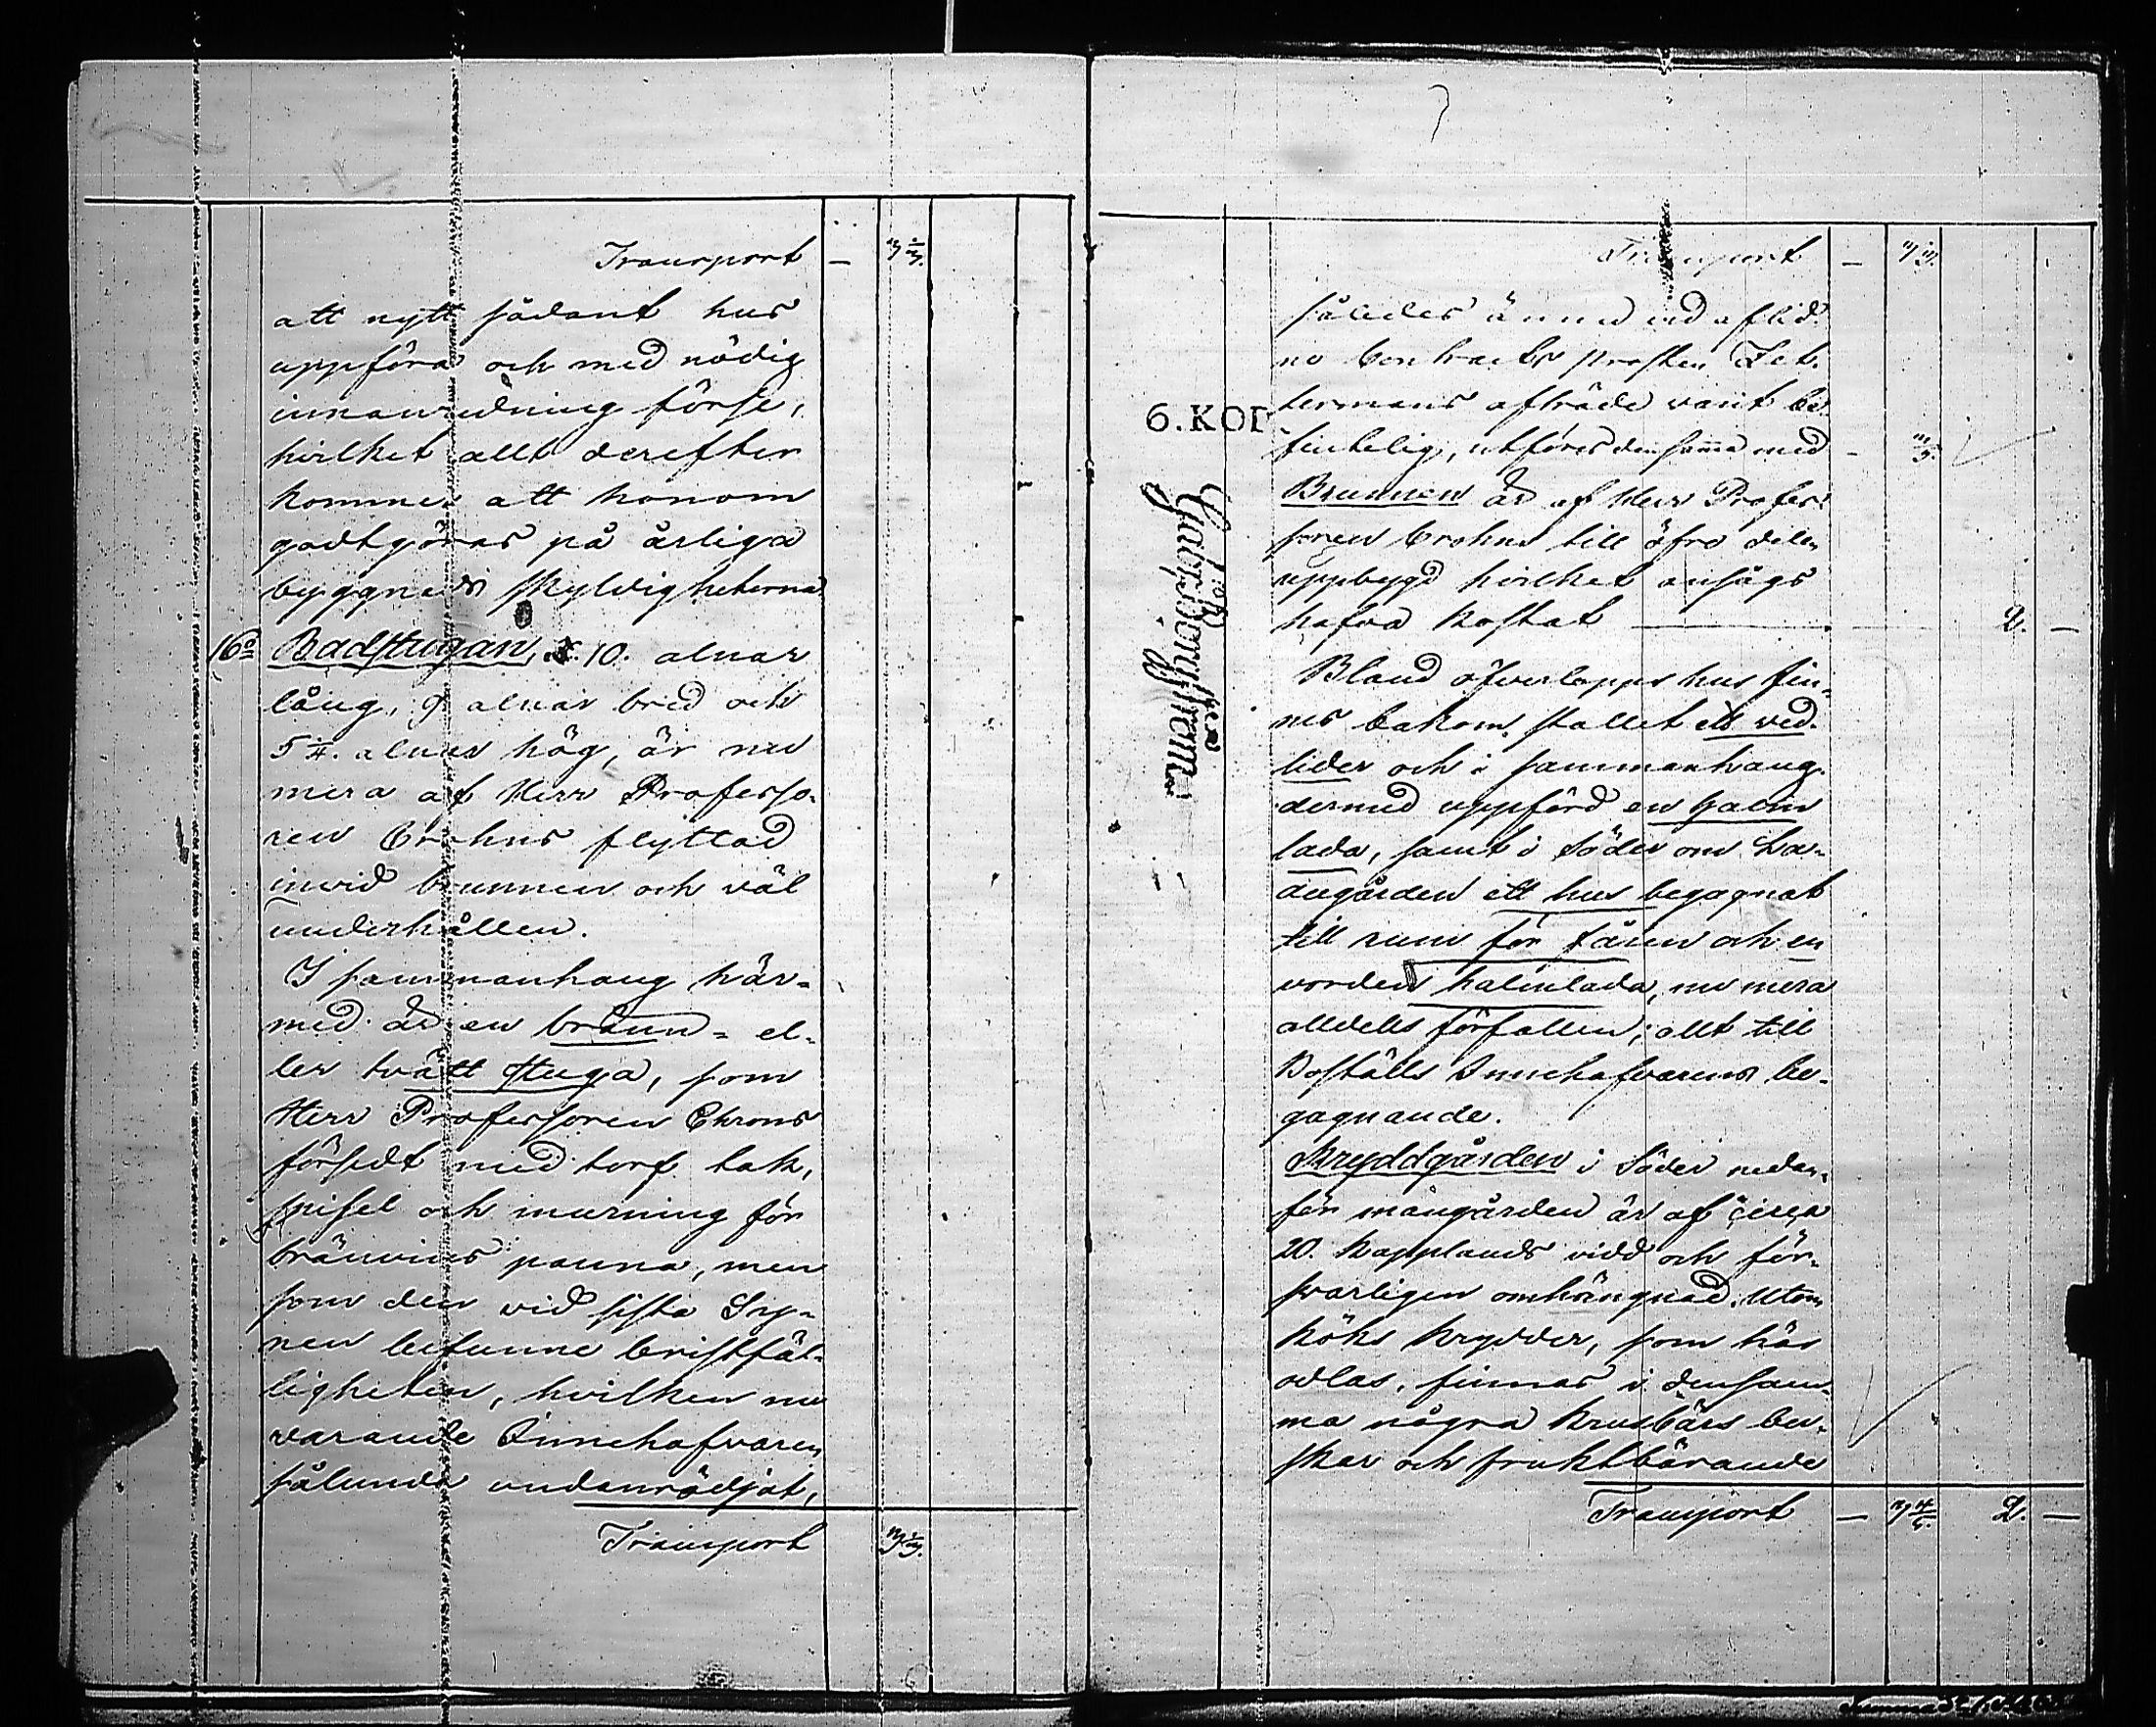 Transport —
att nytt sådant hus
uppföra och med nödig
innanredning förse,
hvilket allt derefter
kommer att honom
godtgöras på årliga
byggnads skyldigheterna.
16o Badstugan, 10. alnar
lång, 9 alnar bred och
5 alnar hög, är nu
mera af Herr Professo-
ren Crohns flyttad
invid brunnen och väl
underhållen.
I sammanhang här-
med är en braun- el-
ler tvätt stuga, som
Herr Professoren Chrons
försedt med torf tak,
spisel och murning för
bränvins panna, men
som den vid sista Sy-
nen befunne bristfäl-
ligheten, hvilken nu
varande Innehafvaren
sålunda undanrödjat,
Transport
Transport —
således ännu vid aflid-
ne Contracts Prosten Zet-
termans afträde varit be-
fintelig, utföres densamma med —
6. KOP
Brunnen är af Herr Profes-
soren Crohns till öfre delen
uppbygd hvilket ansågs
hafva kostat — 2. —
Bland öfverlopps hus fin-
nes bakom stallet ett ved-
lider och i sammanhang
dermed uppförd en halm
lada, samt i Söder om La-
dugården ett hus begagnat
till rum för fåren och en
vorden halmlada, nu mera
alldeles förfallen; allt till
Boställs Innehafvarens be-
gagnande.
Kryddgården i Söder nedan-
för mangården är af circa
20. kapplands vidd och för-
svarligen omhängnad. Utom
köks krydder, som här
odlas, finnas i densam-
ma några krusbärs bu-
skar och fruktbärande
Transport — 2. —